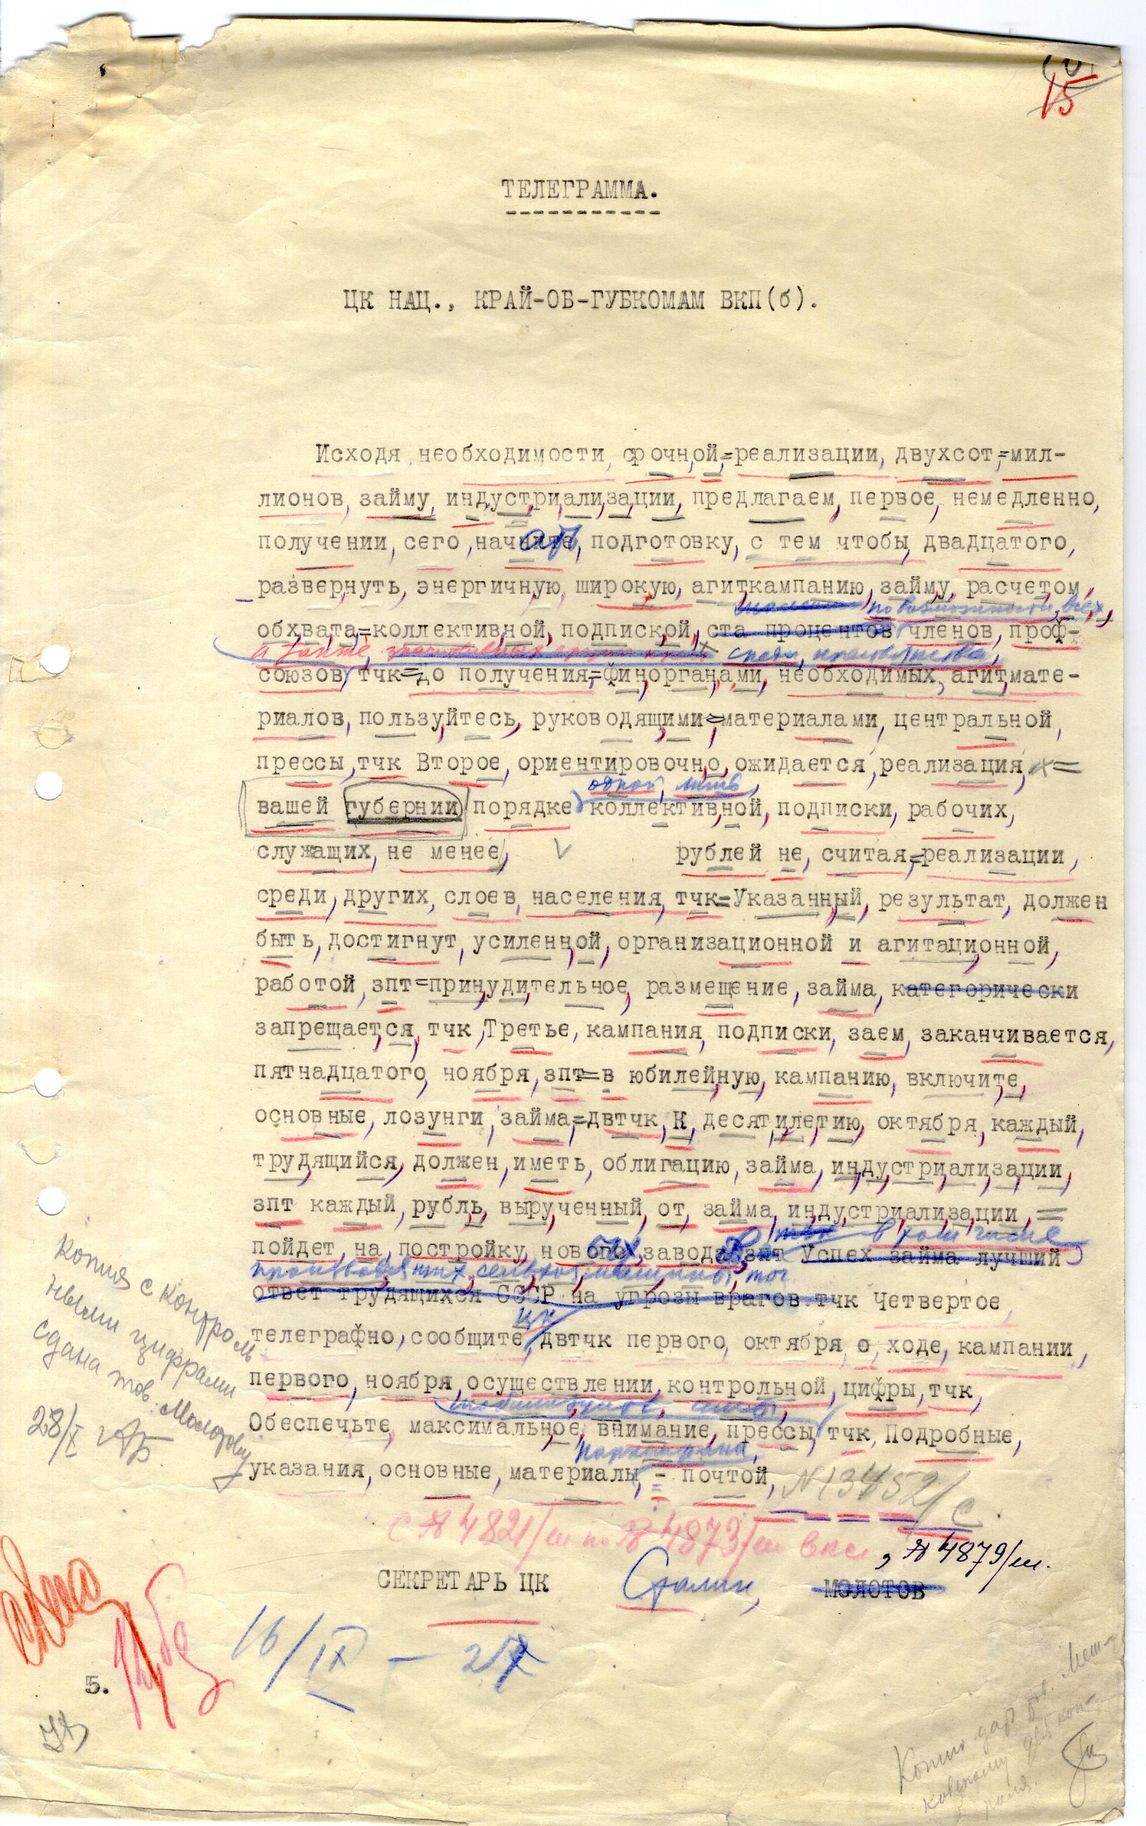 15
ТЕЛЕГРАММА.
ЦК НАЦ., КРАЙ-ОБ-ГУБКОМАМ ВКП(б).
Исходя необходимости срочной=реализации двухсот=мил-
лионов займу индустриализации предлагаем первое немедленно
получении сего начните подготовку с тем чтобы двадцатого
развернуть энергичную широкую агиткампанию займу расчетом
по возможности всех
обхвата=коллективной подпиской ста процентов членов проф-
а также среди крестьянства
союзов тчк=до получения=финорганами необходимых агитмате-
риалов пользуйтесь руководящими=материалами центральной
прессы тчк Второе ориентировочно ожидается реализация =
одной лишь
вашей губернии порядке коллективной подписки рабочих
служащих не менее рублей не считая=реализации
среди других слоев населения тчк=Указанный результат должен
быть достигнут усиленной организационной и агитационной
работой зпт=принудительное размещение займа категорически
запрещается тчк Третье кампания подписки заем заканчивается
пятнадцатого ноября зпт=в юбилейную кампанию включите
основные лозунги займа=двтчк К десятилетию октября каждый
трудящийся должен иметь облигацию займа индустриализации
зпт каждый рубль вырученный от займа индустриализации =
в том числе
пойдет на постройку нового завода зпт Успех займа лучший
производящих сельхозмашины тчк
ответ трудящихся СССР на угрозы врагов тчк Четвертое
ЦК
телеграфно сообщите двтчк первого октября о ходе кампании
первого ноября осуществлении контрольной цифры тчк
Обеспечьте максимальное внимание прессы тчк Подробные
указания основные материалы - почтой
N13452/с
с № 4821/ш по № 4873/ш вкл., № 4879/ш.
СЕКРЕТАРЬ ЦК Сталин МОЛОТОВ
16/IX - 27
5.
Копия с контроль
ными цифрами
сдана тов. Молотову